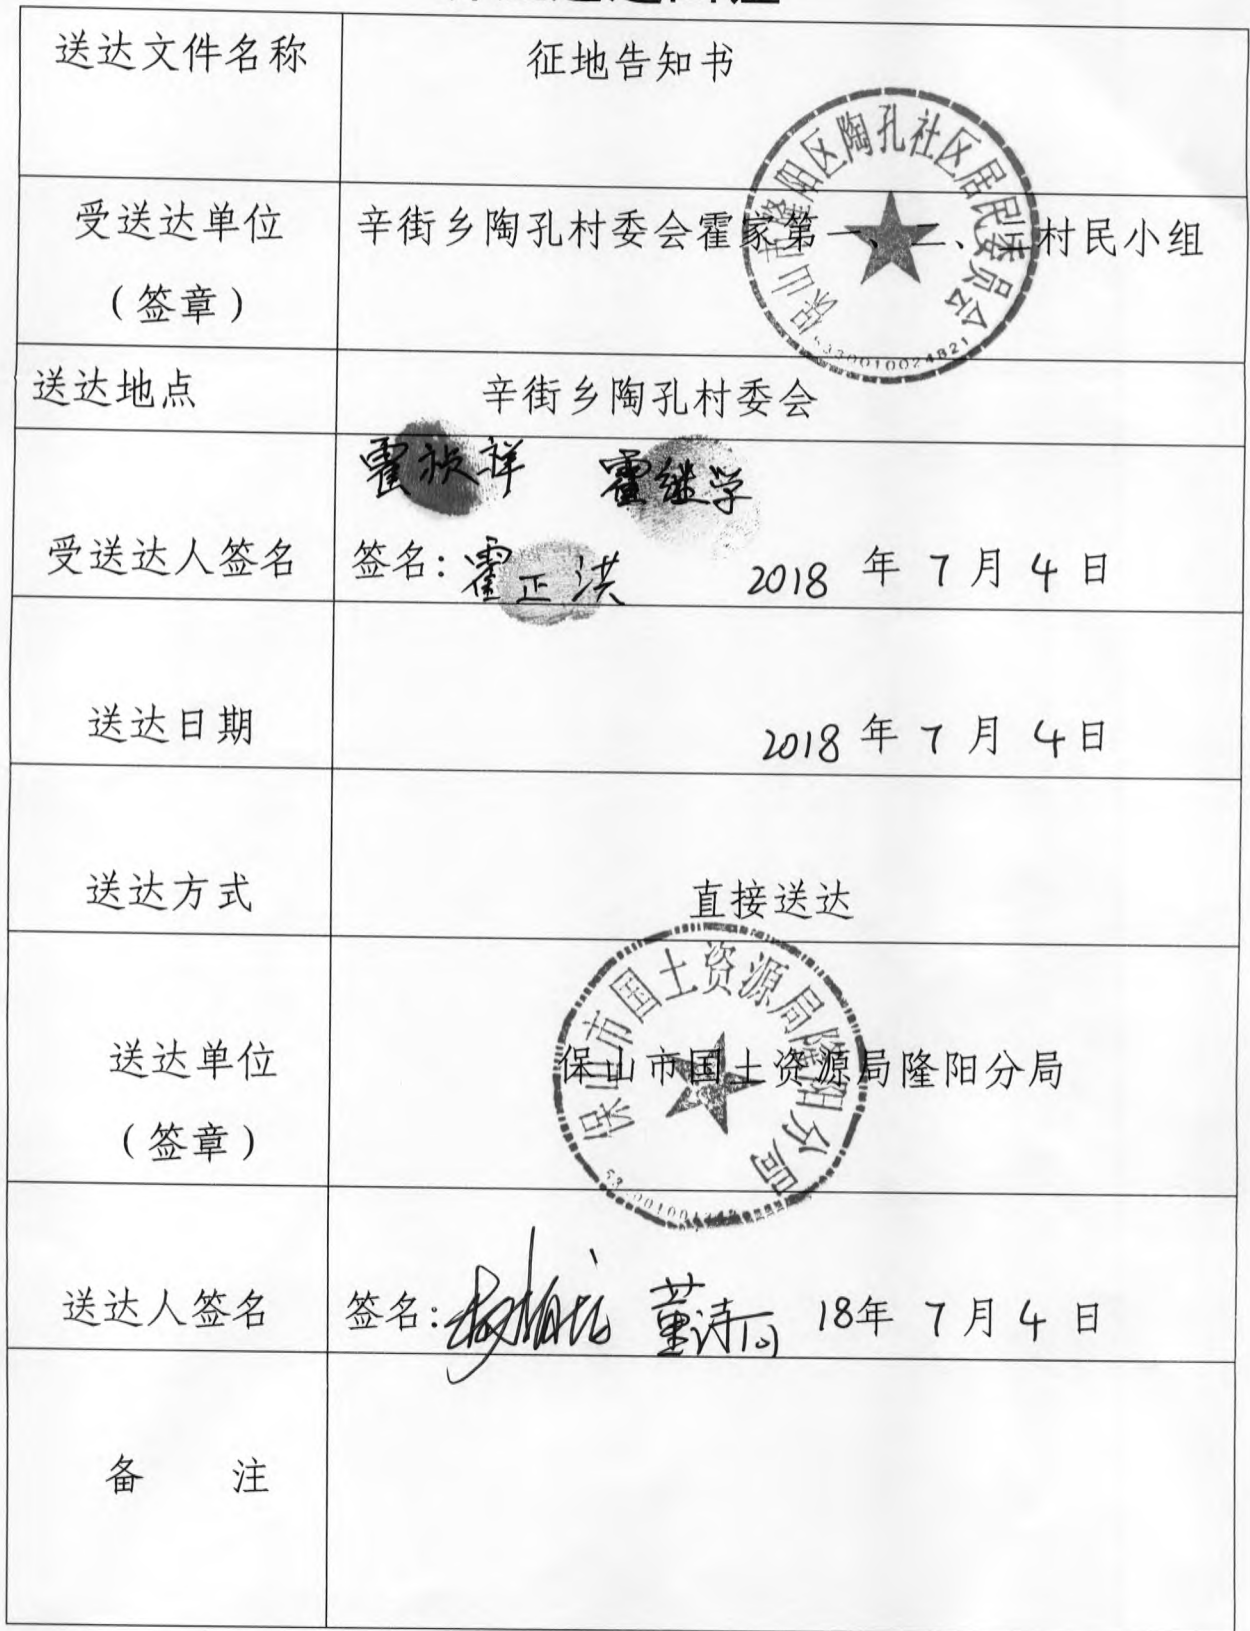 送达文件名称
征地告知书
受送达单位
（签章）
辛街乡陶孔村委会霍家第一、二、三村民小组
保山市隆阳区陶孔社区居民委员会
5330010024821
送达地点
辛街乡陶孔村委会
霍祯祥 霍继学
受送达人签名
签名：霍正洪 2018 年 7 月 4 日
送达日期
2018 年 7 月 4 日
送达方式
直接送达
送达单位
（签章）
保山市国土资源局隆阳分局
保山市国土资源局隆阳分局
送达人签名
签名： 董诗 18年 7 月 4 日
备 注